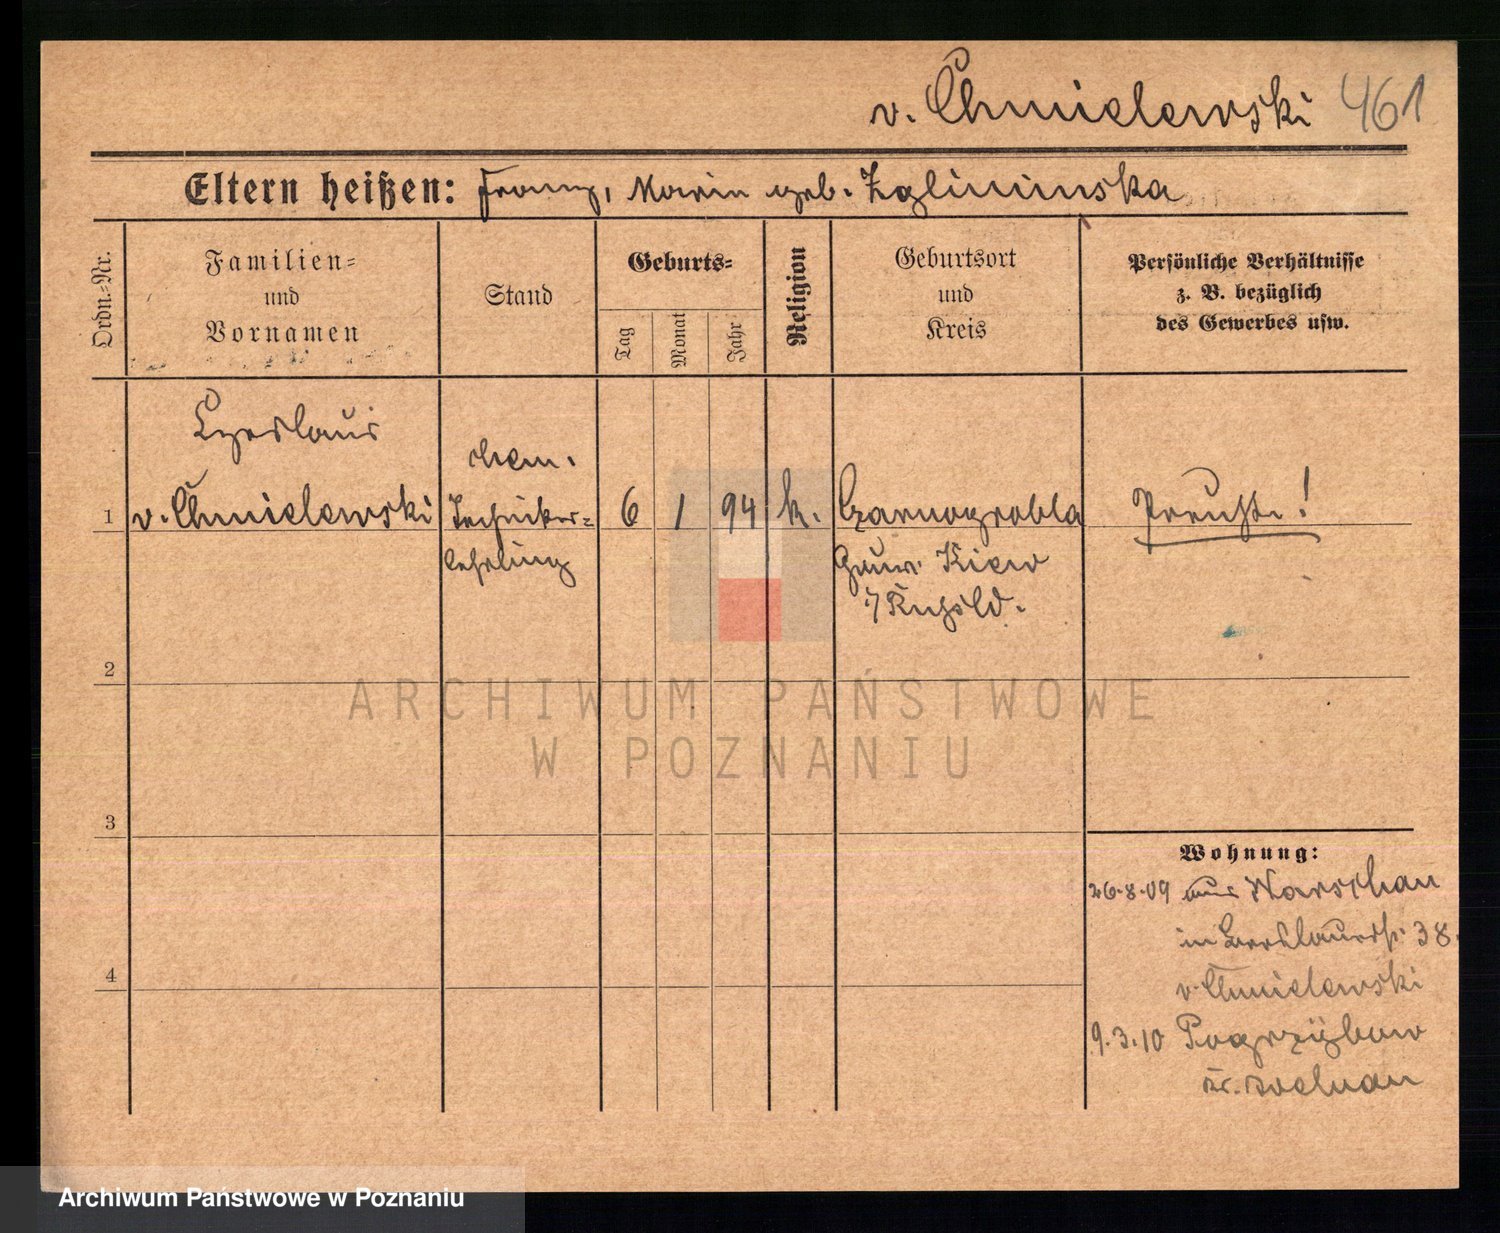 v. Chmielewski 461
Eltern heißen: Franz, Maria geb. Zglininska
Ordn.-Nr.
Familien-
und
Vornamen
Stand
Geburts-
Tag
Monat
Jahr
Religion
Geburtsort
und
Kreis
Persönliche Verhältnisse
z. B. bezüglich
des Gewerbes usw.
Czeslaus
v. Chmielewski
chem.
Techniker-
lehrling
1
6 1 94 k.
Czarnogrobla
Gouv. Kiew
i/Rußld.
Preuße!
2
3
4
Wohnung:
26.8.09 aus Warschau
in Breslauerstr. 38.
v. Chmielewski
9.3.10 Pogrzybow
Kr. Adelnau
ARCHIWUM PAŃSTWOWE
W POZNANIU
Archiwum Państwowe w Poznaniu